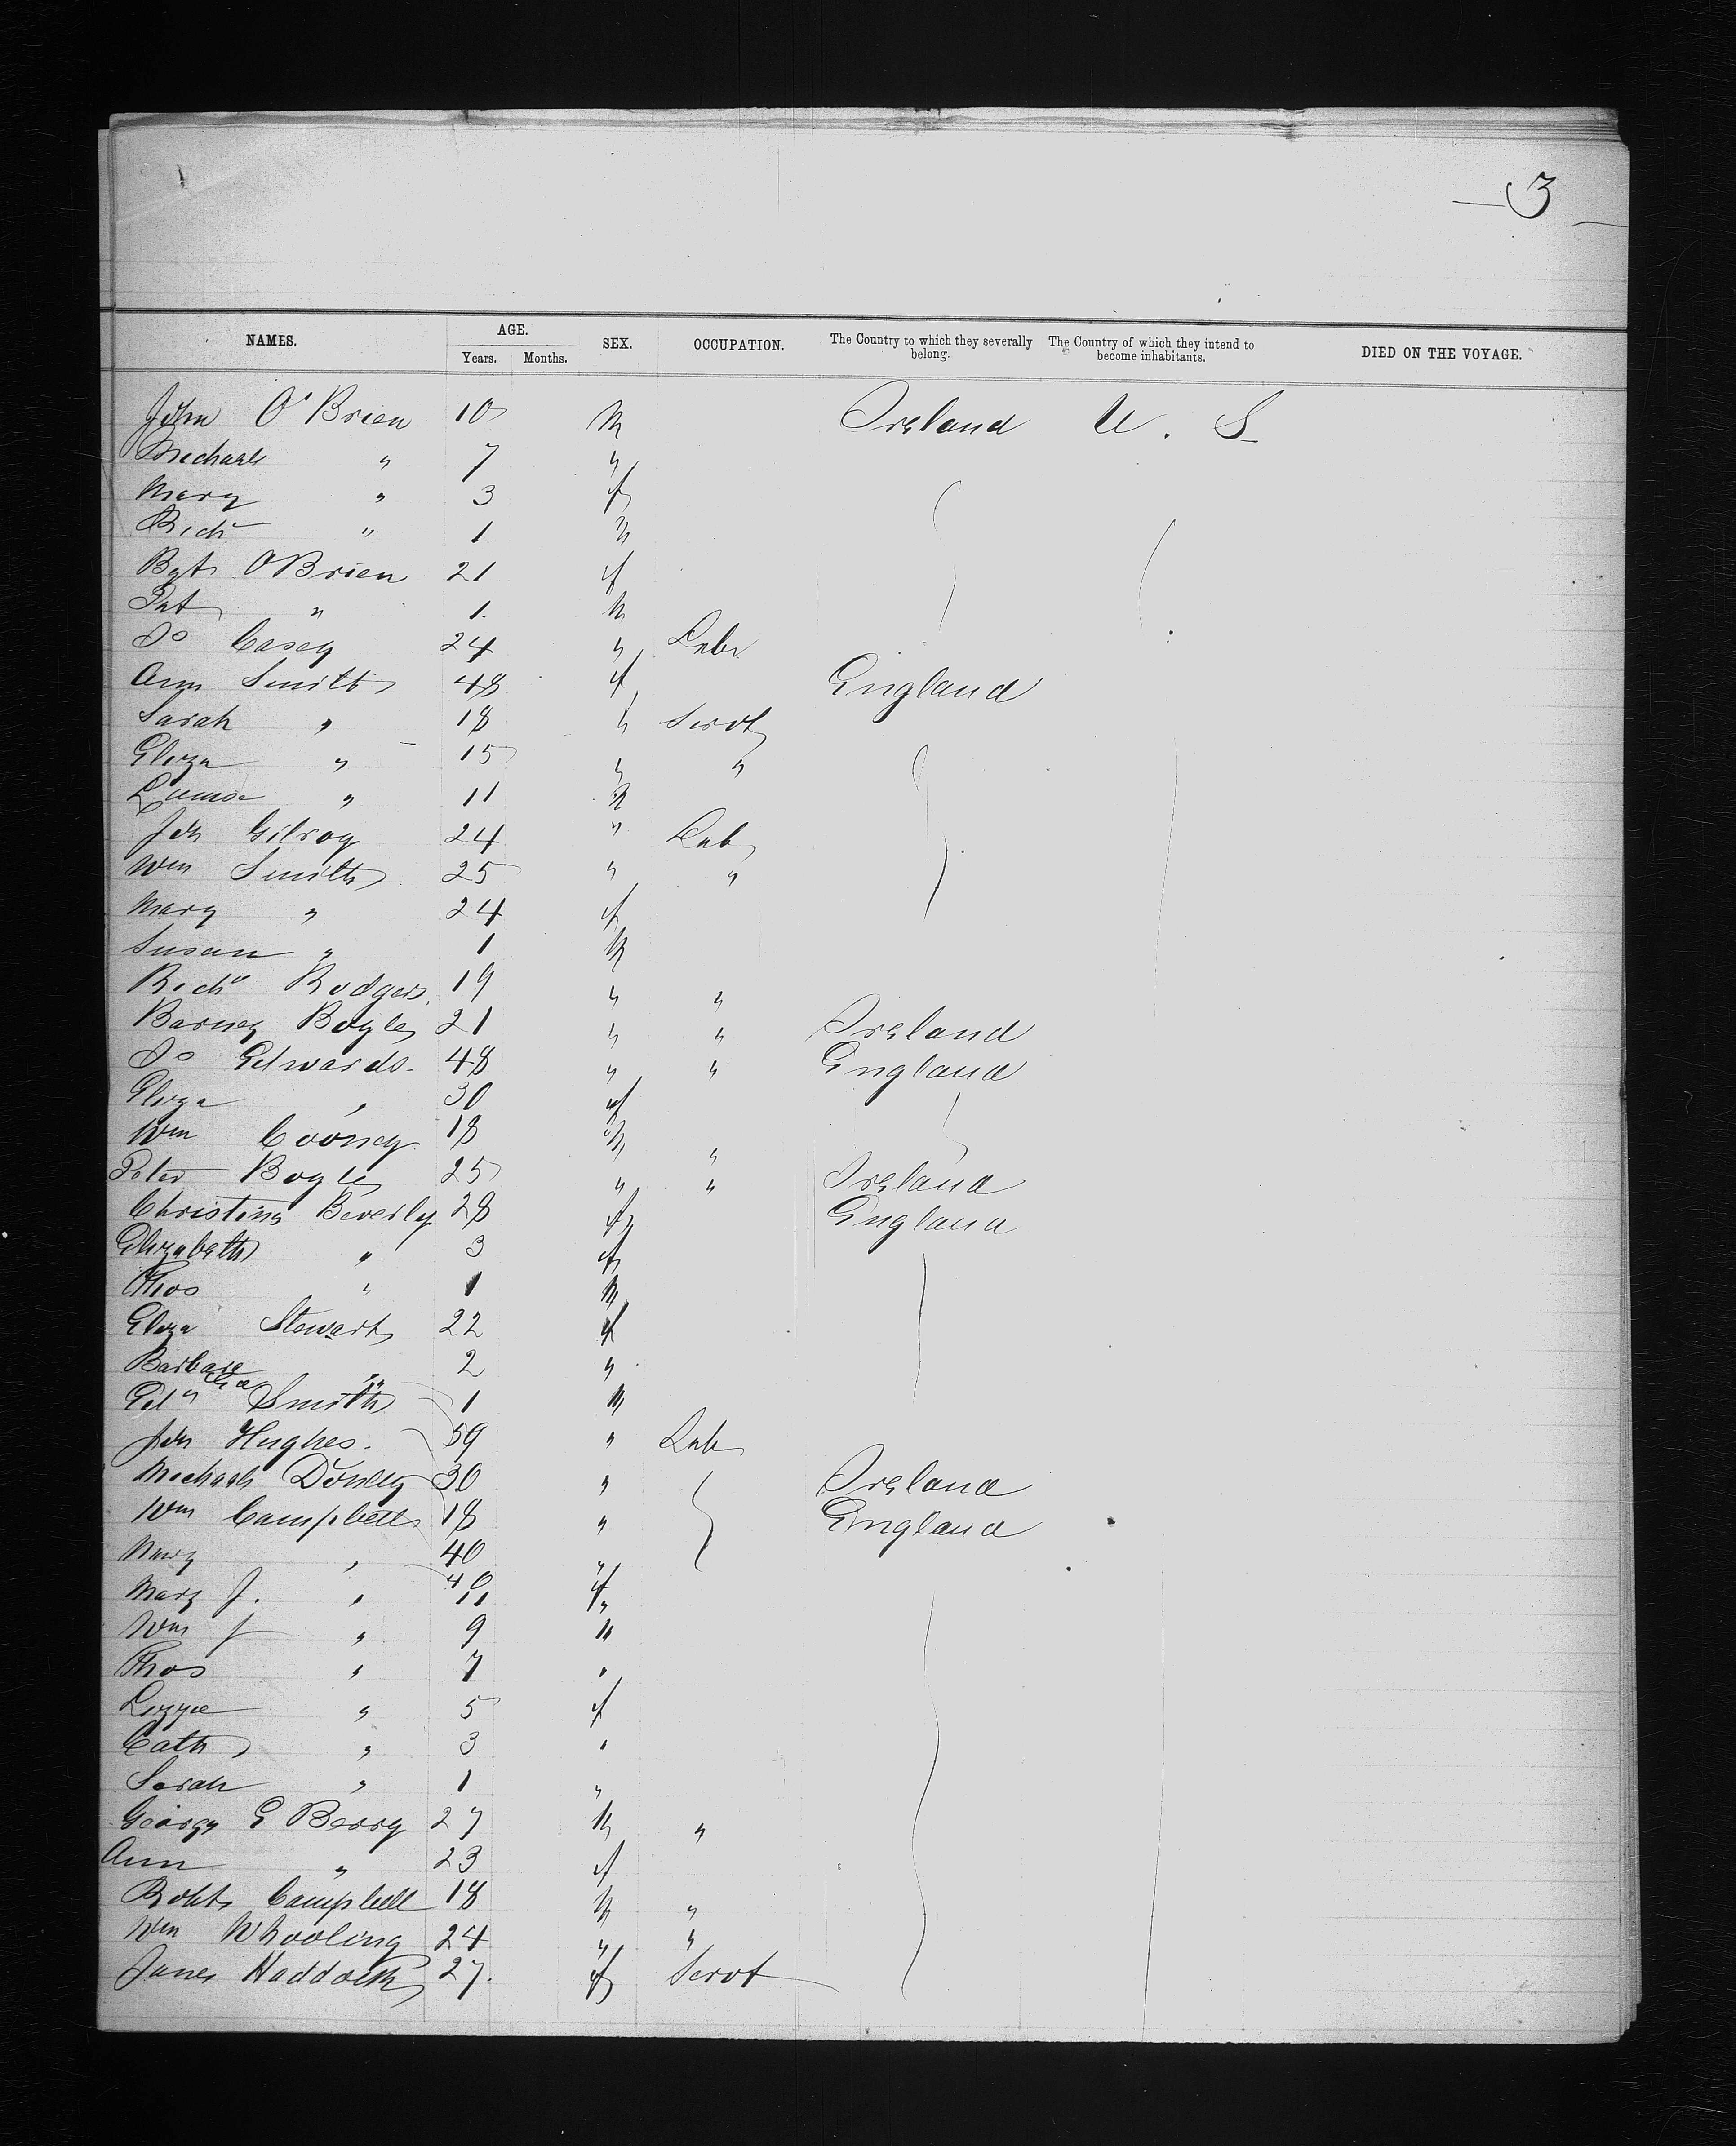 3
NAMES. AGE. SEX. OCCUPATION. The Country to which they severally belong. The Country of which they intend to become inhabitants. DIED ON THE VOYAGE.
Years. Months.
John O'Brien 10 M Ireland U. S
Michael " 7 "
Mary " 3 f
Richd " 1 M
Bgt OBrien 21 f
Pat " 1 M
Do Casey 24 " Labr
Ann Smith 48 f England
Sarah " 18 " Servt
Eliza " 15 " "
Louisa " 11 M
Jon Gilroy 24 " Lab
Wm Smith 25 " "
Mary " 24 f
Susan " 1 M
Richd Rodgers 19 " "
Barney Boyle 21 " " Ireland
Do Edwards 48 " " England
Eliza " 30 f
Wm Cooney 18 M "
Peter Boyle 25 " " Ireland
Christina Beverly 28 f England
Elizabeth " 3 f
Thos " 1 M
Eliza Stewart 22 f
Barbara " 2 "
Edn Smith 1 M
Jon Hughes. 59 " Lab
Michael Donley 30 " Ireland
Wm Campbell 18 " England
Mary " 40 "
Mary J. " 11 f
Wm J " 9 M
Thos " 7 "
Lizzie " 5 f
Cath " 3 "
Sarah " 1 "
George E Berry 27 M "
Ann " 23 f
Robt Campbell 18 M "
Wm Whooling 24 " "
Janes Haddock 27. f Servt